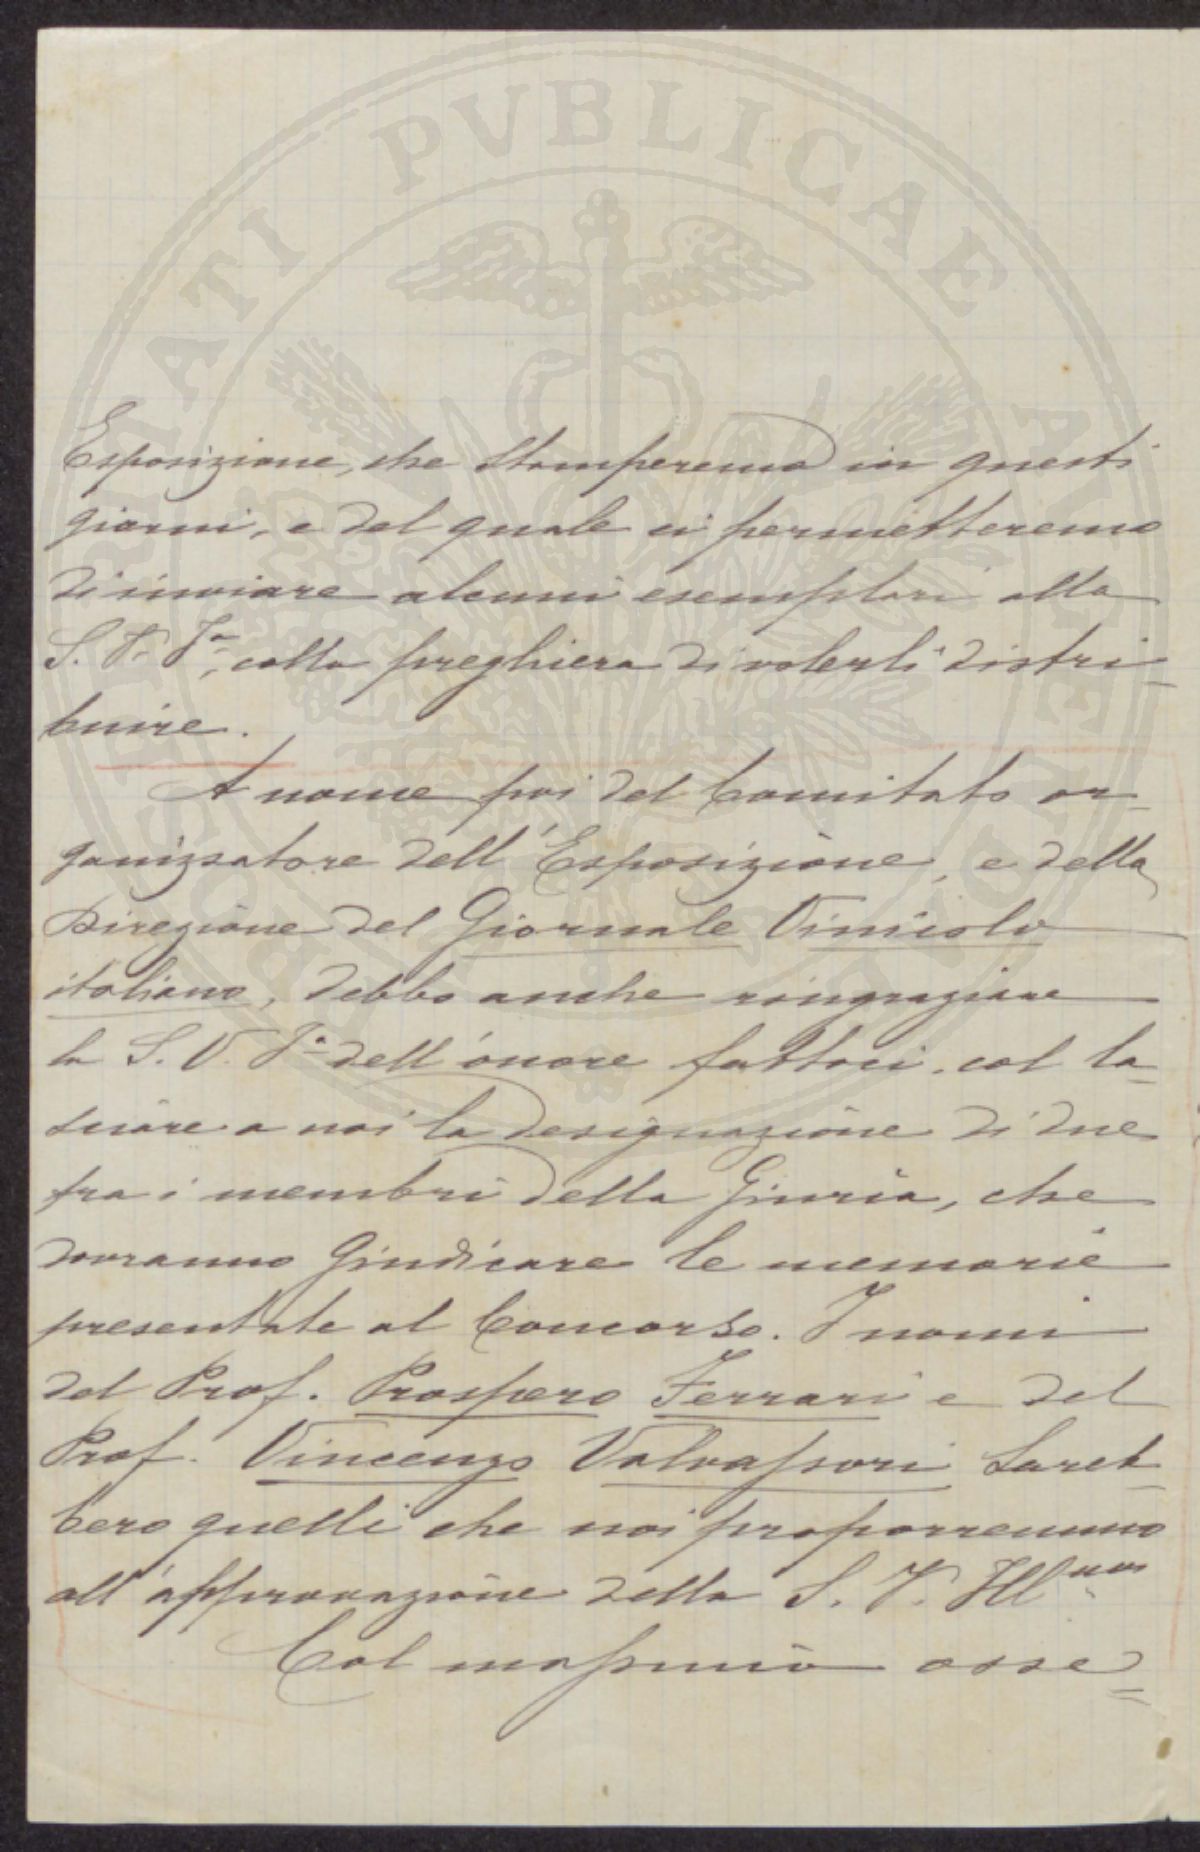 Esposizione, che stamperemo in questi
giorni, e del quale ci permetteremo
di inviare alcuni esemplari alla
S. V. Iª, colla preghiera di volerli distri=
buire.
A nome poi del Comitato or=
ganizzatore dell'Esposizione, e della
Direzione del Giornale Vinicolo
italiano, debbo anche ringraziare
la S. V. Iª dell'onore fattoci, col la=
sciare a noi la designazione di due
fra i membri della Giuria, che
dovranno Giudicare le memorie
presentate al Concorso. I nomi
del Prof. Prospero Ferrari e del
Prof. Vincenzo Valvassori sareb=
bero quelli che noi proporremmo
all'approvazione della S. V. Ill.ma
Col massimo osse=
PUBLICAE